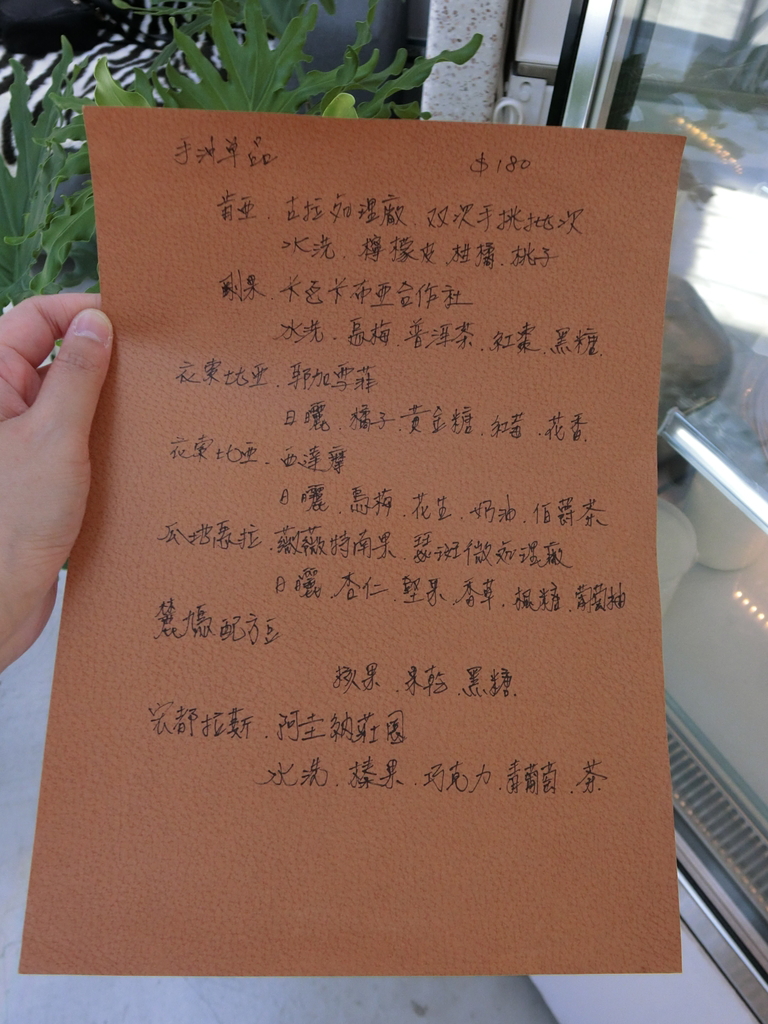 手沖單品 $180
肯亞．古拉處理廠．双次手挑批次
水洗．檸檬皮．柑橘．桃子
剛果．卡邑卡布亞合作社
水洗．烏梅．普洱茶．紅棗．黑糖
衣索比亞．耶加雪菲
日曬．橘子．黃金糖．紅莓．花香
衣索比亞．西達摩
日曬．烏梅．花生．奶油．伯爵茶
瓜地馬拉．薇薇特南果．瑟斑微處理廠
日曬．杏仁．堅果．香草．楓糖．葡萄柚
配方豆
核果．果乾．黑糖
宏都拉斯．阿圭納莊園
水洗．榛果．巧克力．青葡萄．茶